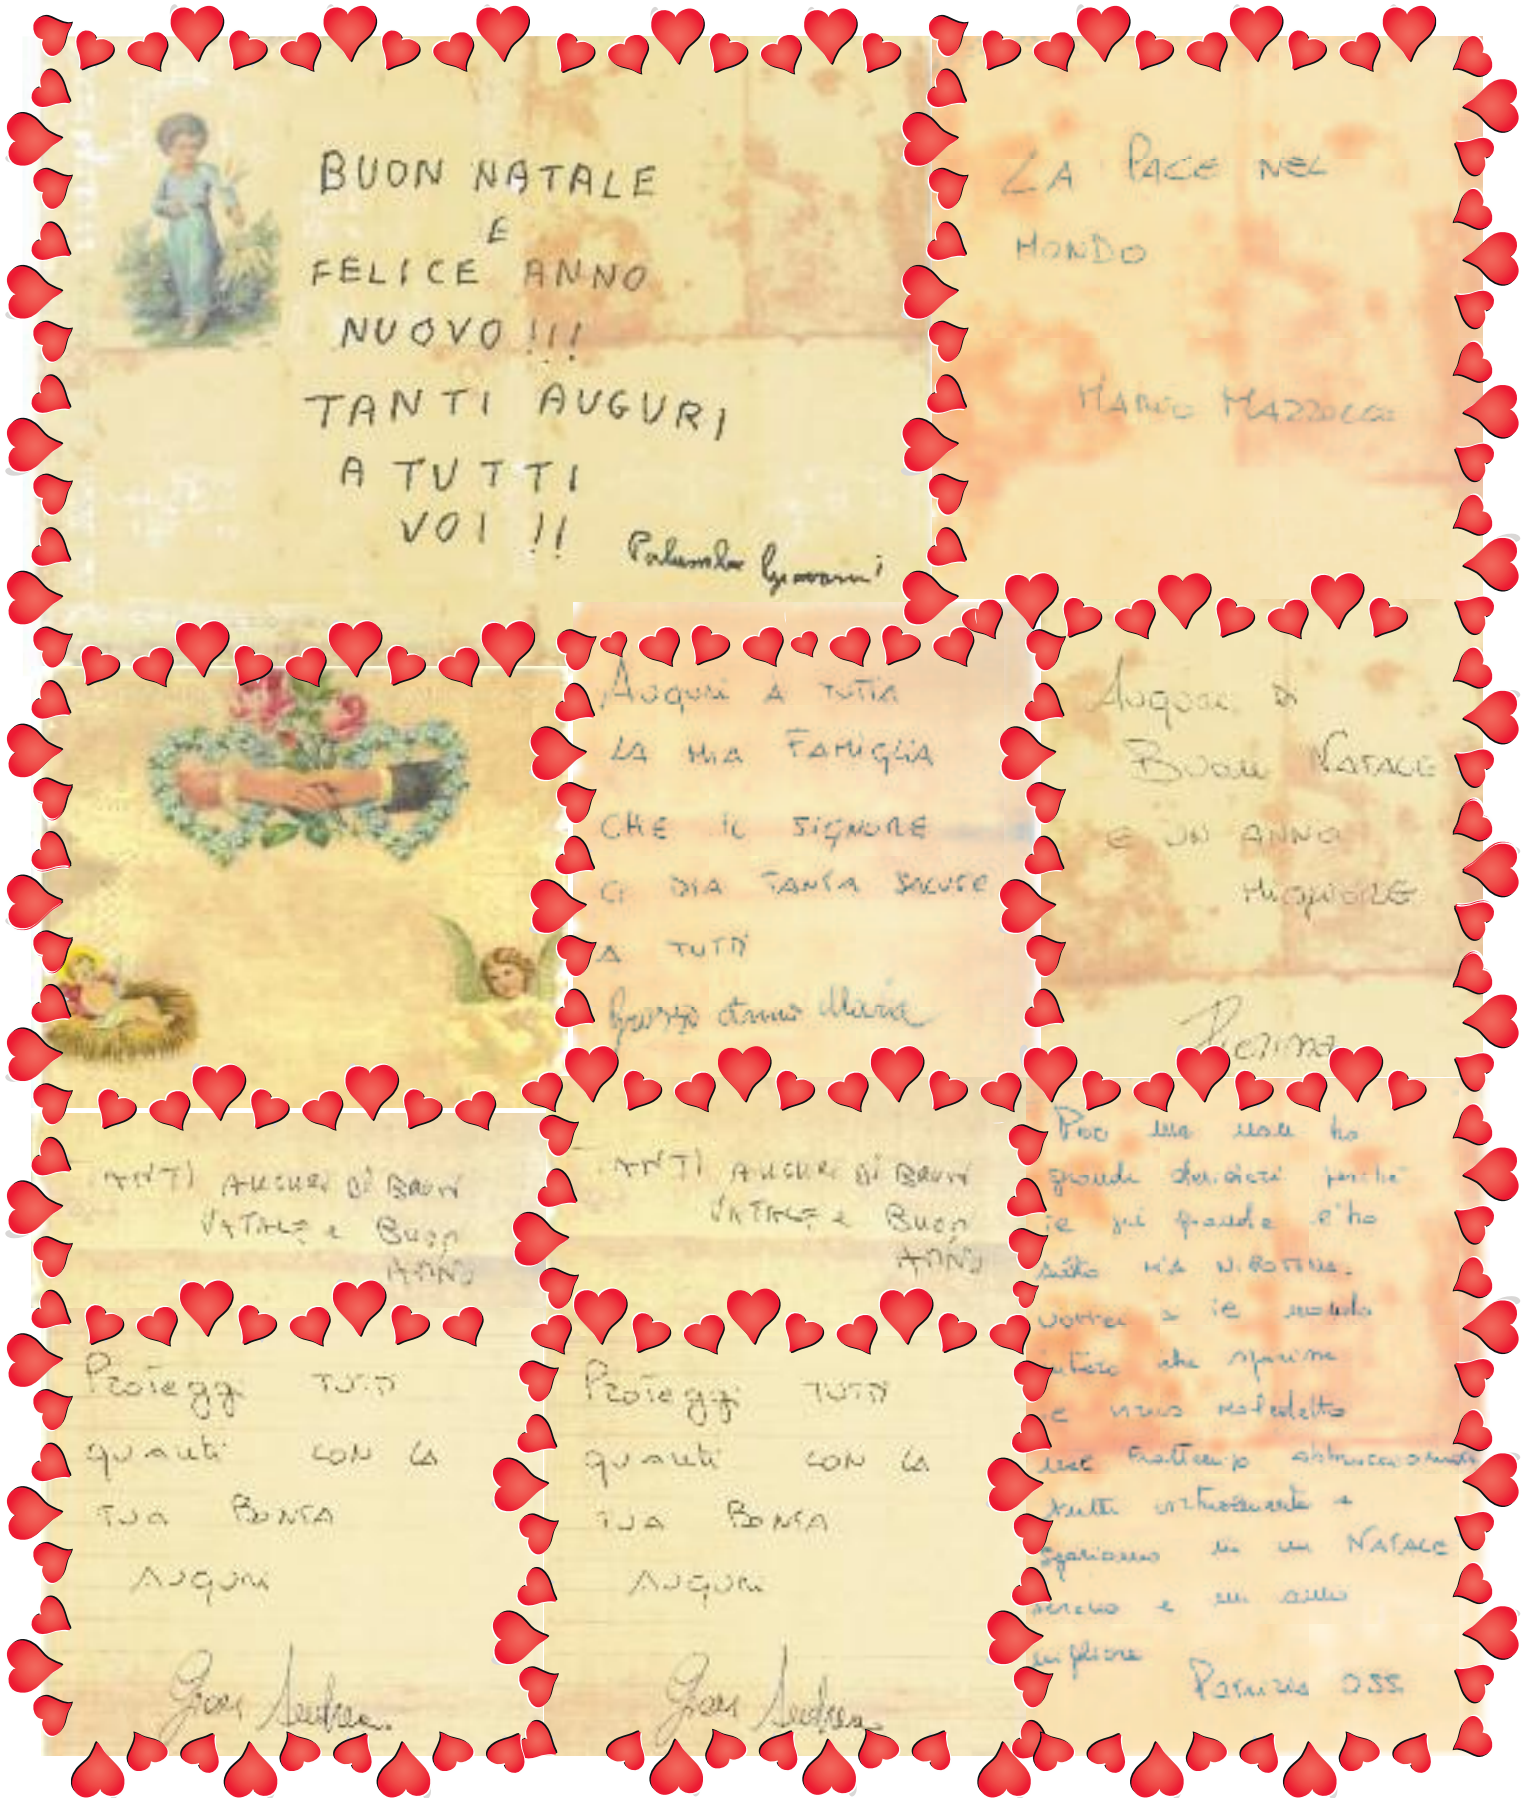 BUON NATALE
E
FELICE ANNO
NUOVO !!!
TANTI AUGURI
A TUTTI
VOI !!
Palumbo Giovanni
LA PACE NEL
MONDO
MARIO MAZZOCCO
AUGURI A TUTTA
LA MIA FAMIGLIA
CHE IL SIGNORE
CI DIA TANTA SALUTE
A TUTTI
Anna Maria
AUGURI DI
BUON NATALE
E UN ANNO
MIGLIORE
Pierina
ANTI AUGURI DI BUON
NATALE e BUON
ANNO
ANTI AUGURI DI BUON
NATALE e BUON
ANNO
Proteggi TUTTI
quanti CON LA
TUA BONTA
AUGURI
Gian Andrea
Proteggi TUTTI
quanti CON LA
TUA BONTA
AUGURI
Gian Andrea
non ho
grandi desideri perché
il più grande l'ho
MIA NIPOTINA.
vorrei x il mondo
intero che sparisse
il virus maledetto
nel frattempo abbracciamoci
tutti virtualmente e
speriamo in un NATALE
sereno e un anno
migliore
Patrizia OSS